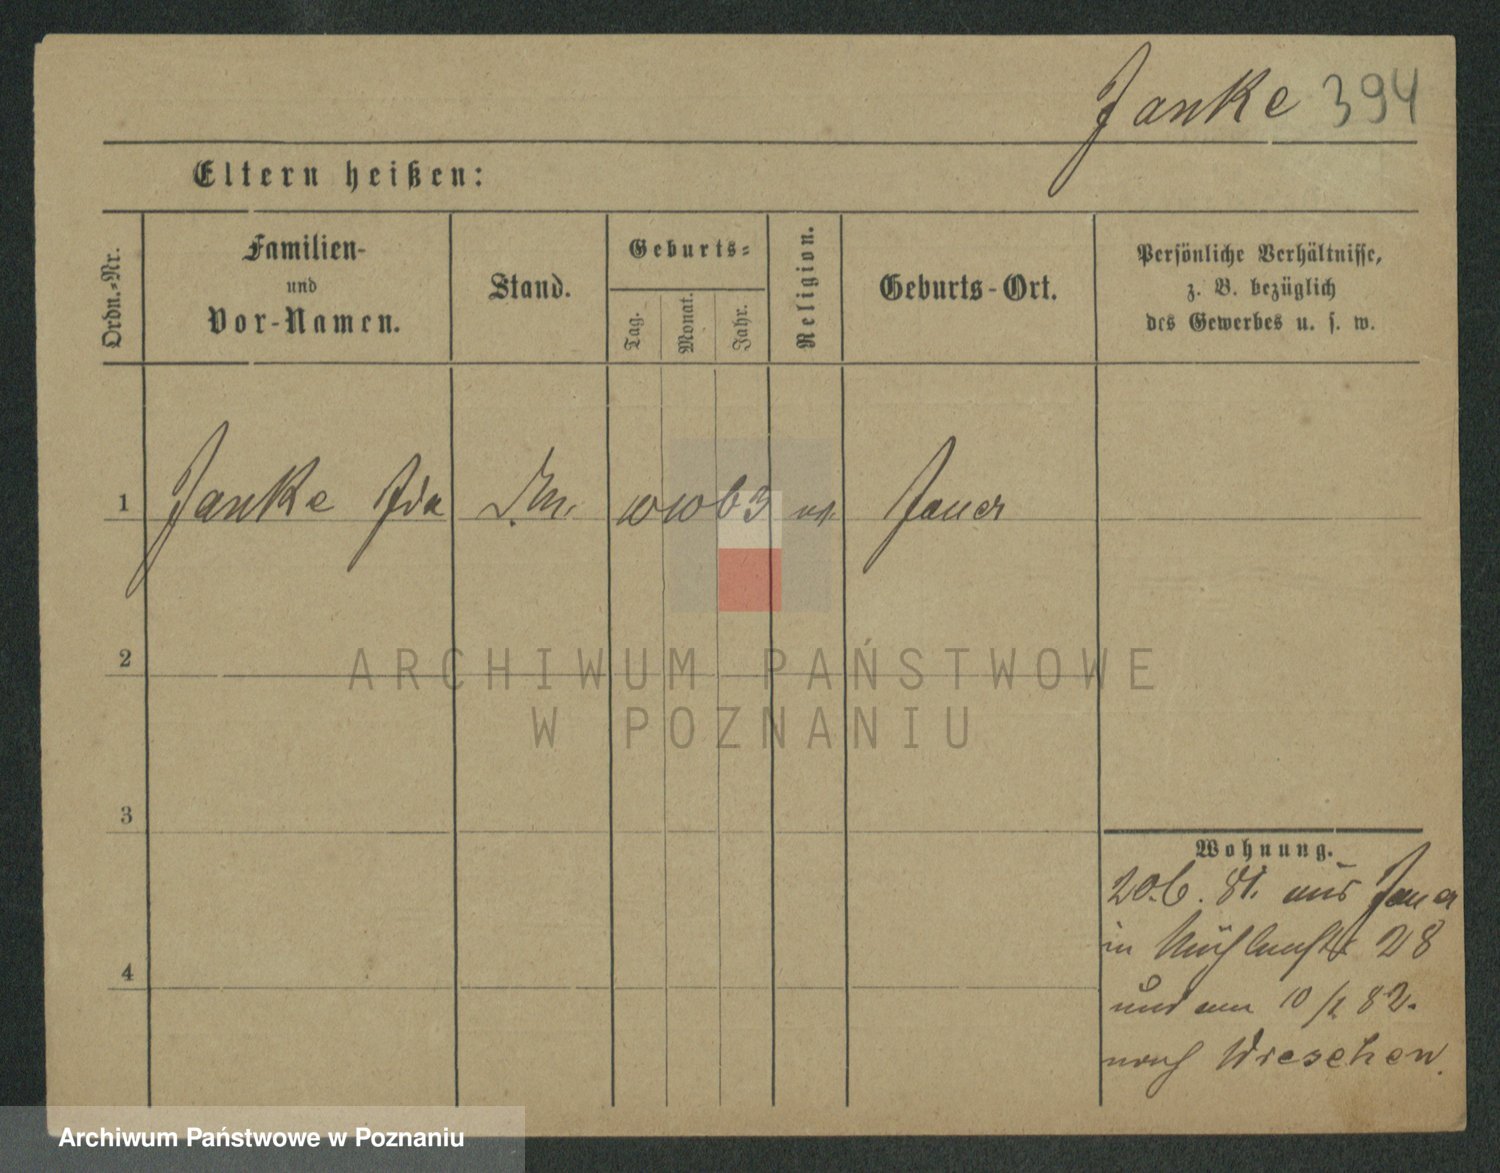 Janke 394
Eltern heißen:
Ordn.-Nr.
Familien-
und
Vor-Namen.
Stand.
Geburts-
Tag.
Monat.
Jahr.
Religion.
Geburts-Ort.
Persönliche Verhältnisse,
z. B. bezüglich
des Gewerbes u. s. w.
1 Janke Ida 10 10 63 Jauer
2
3
4
Wohnung.
20.6.81. aus Jauer
in Mühlenstr 28
und am 10/2 82.
nach Wreschen.
ARCHIWUM PAŃSTWOWE
W POZNANIU
Archiwum Państwowe w Poznaniu